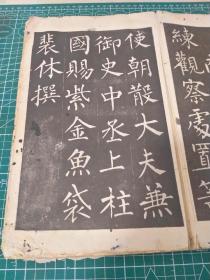 練觀察處置等
使朝散大夫兼
御史中丞上柱
國賜紫金魚袋
裴休撰